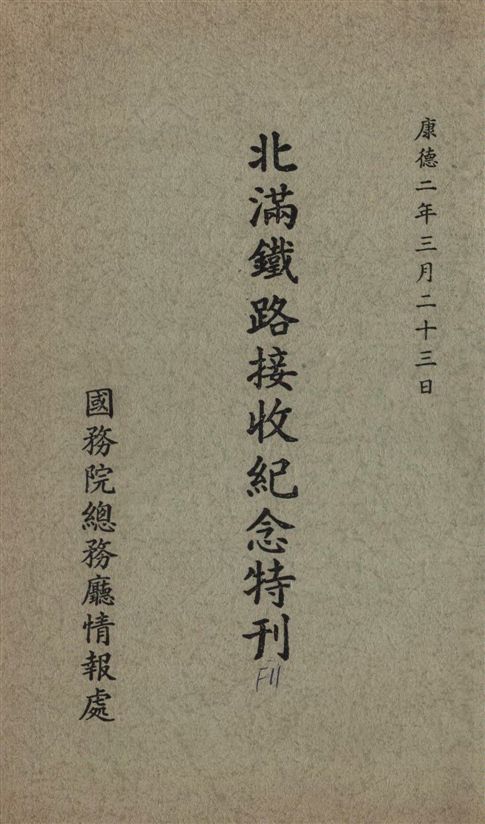 康德二年三月二十三日
北滿鐵路接收紀念特刊
F11
國務院總務廳情報處